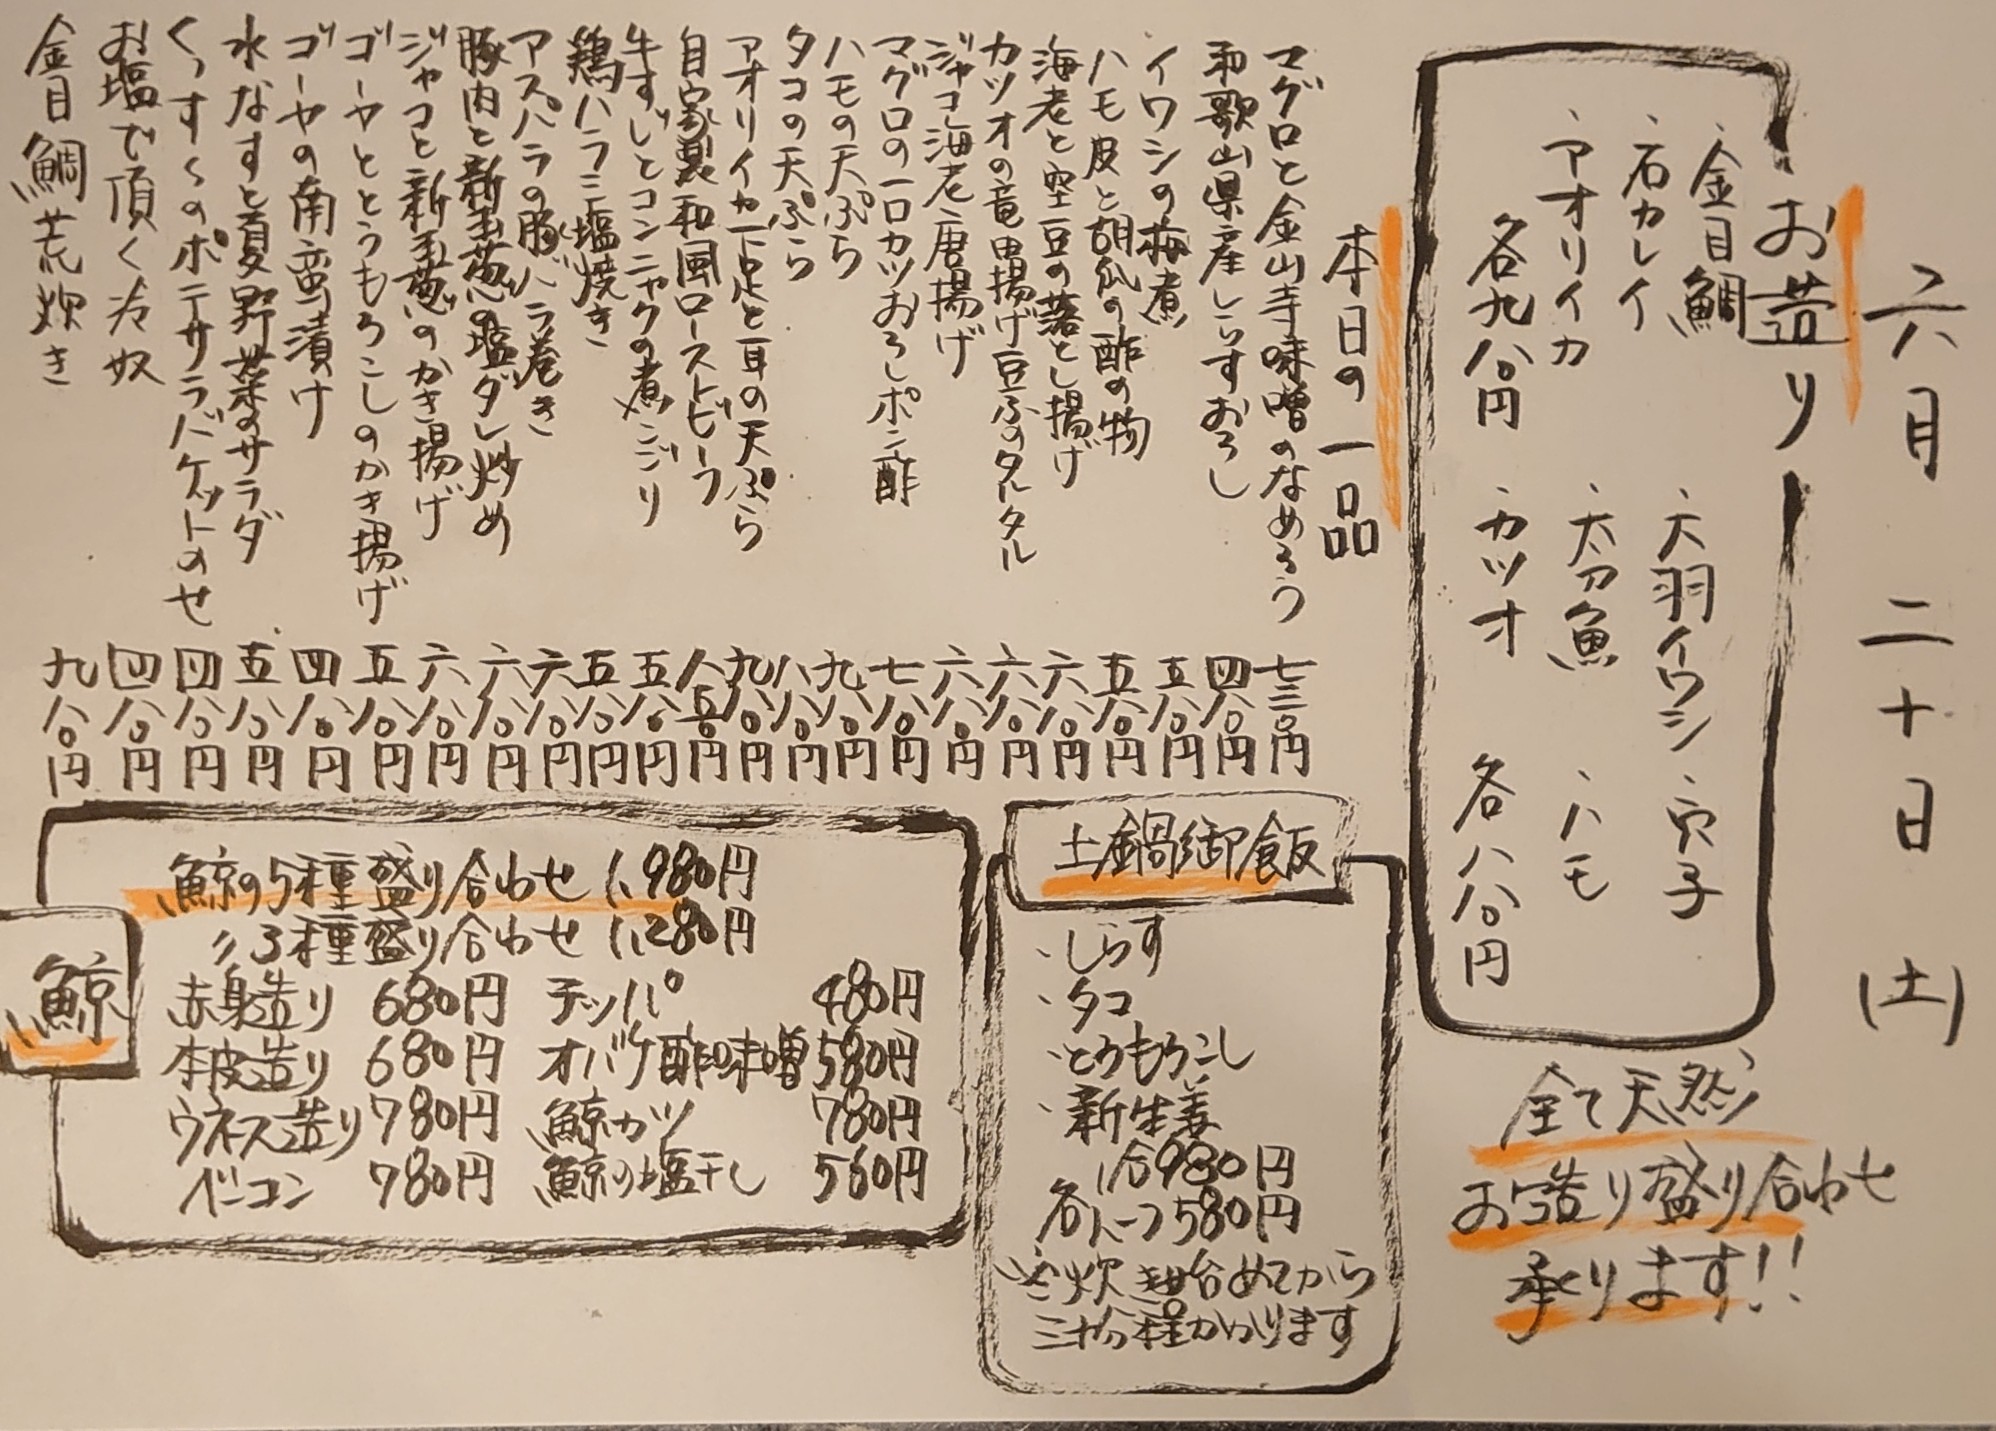 六月二十日(土)
お造り
・金目鯛
・石カレイ
・アオリイカ
各九八〇円
・大羽イワシ
・太刀魚
・カツオ
・穴子
・ハモ
各八八〇円
全て天然
お造り盛り合わせ
承ります!!
本日の一品
マグロと金山寺味噌のなめろう 七三〇円
和歌山県産しらすおろし 四八〇円
イワシの梅煮 五八〇円
ハモ皮と胡瓜の酢の物 五八〇円
海老と空豆の落とし揚げ 六八〇円
カツオの竜田揚げ豆ふのタルタル 六八〇円
ジャコ海老唐揚げ 六八〇円
マグロの一口カツおろしポン酢 七八〇円
ハモの天ぷら 九八〇円
タコの天ぷら 八八〇円
アオリイカ下足と耳の天ぷら 九八〇円
自家製和風ローストビーフ 八五〇円
牛すじとコンニャクの煮こごり 五八〇円
鶏ハラミ塩焼き 五八〇円
アスパラの豚バラ巻き 六八〇円
豚肉と新玉葱の塩ダレ炒め 六八〇円
ジャコと新玉葱のかき揚げ 六八〇円
ゴーヤととうもろこしのかき揚げ 五八〇円
ゴーヤの南蛮漬け 四八〇円
水なすと夏野菜のサラダ 五八〇円
くつすくのポテサラバケットのせ 四八〇円
お塩で頂く冷奴 四八〇円
金目鯛荒炊き 九八〇円
土鍋御飯
・しらす
・タコ
・とうもろこし
・新生姜
1合980円
各ハーフ580円
炊き始めてから
三十分程かかります
鯨
鯨の5種盛り合わせ 1,980円
〃3種盛り合わせ 1,280円
赤身造り 680円
本皮造り 680円
ウネス造り 780円
ベーコン 780円
チッパ 480円
オバケ酢味噌 580円
鯨カツ 780円
鯨の塩干し 560円